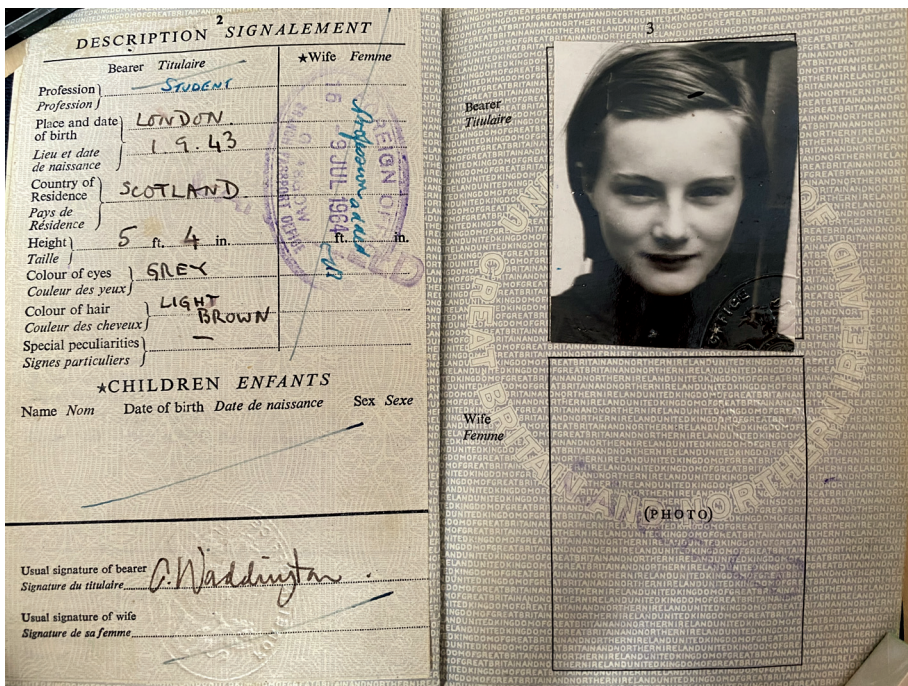 2
DESCRIPTION SIGNALEMENT
Bearer Titulaire
★Wife Femme
Profession
Profession
STUDENT
Place and date of birth
Lieu et date de naissance
LONDON.
1.9.43
Country of Residence
Pays de Résidence
SCOTLAND
Height
Taille
5 ft. 4 in.
ft. in.
Colour of eyes
Couleur des yeux
GREY
Colour of hair
Couleur des cheveux
LIGHT
BROWN
Special peculiarities
Signes particuliers
—
9 JUL 1964
★CHILDREN ENFANTS
Name Nom Date of birth Date de naissance Sex Sexe
Usual signature of bearer
Signature du titulaire
C. Waddington
Usual signature of wife
Signature de sa femme
3
Bearer
Titulaire
Wife
Femme
(PHOTO)
GREAT BRITAIN AND NORTHERN IRELAND